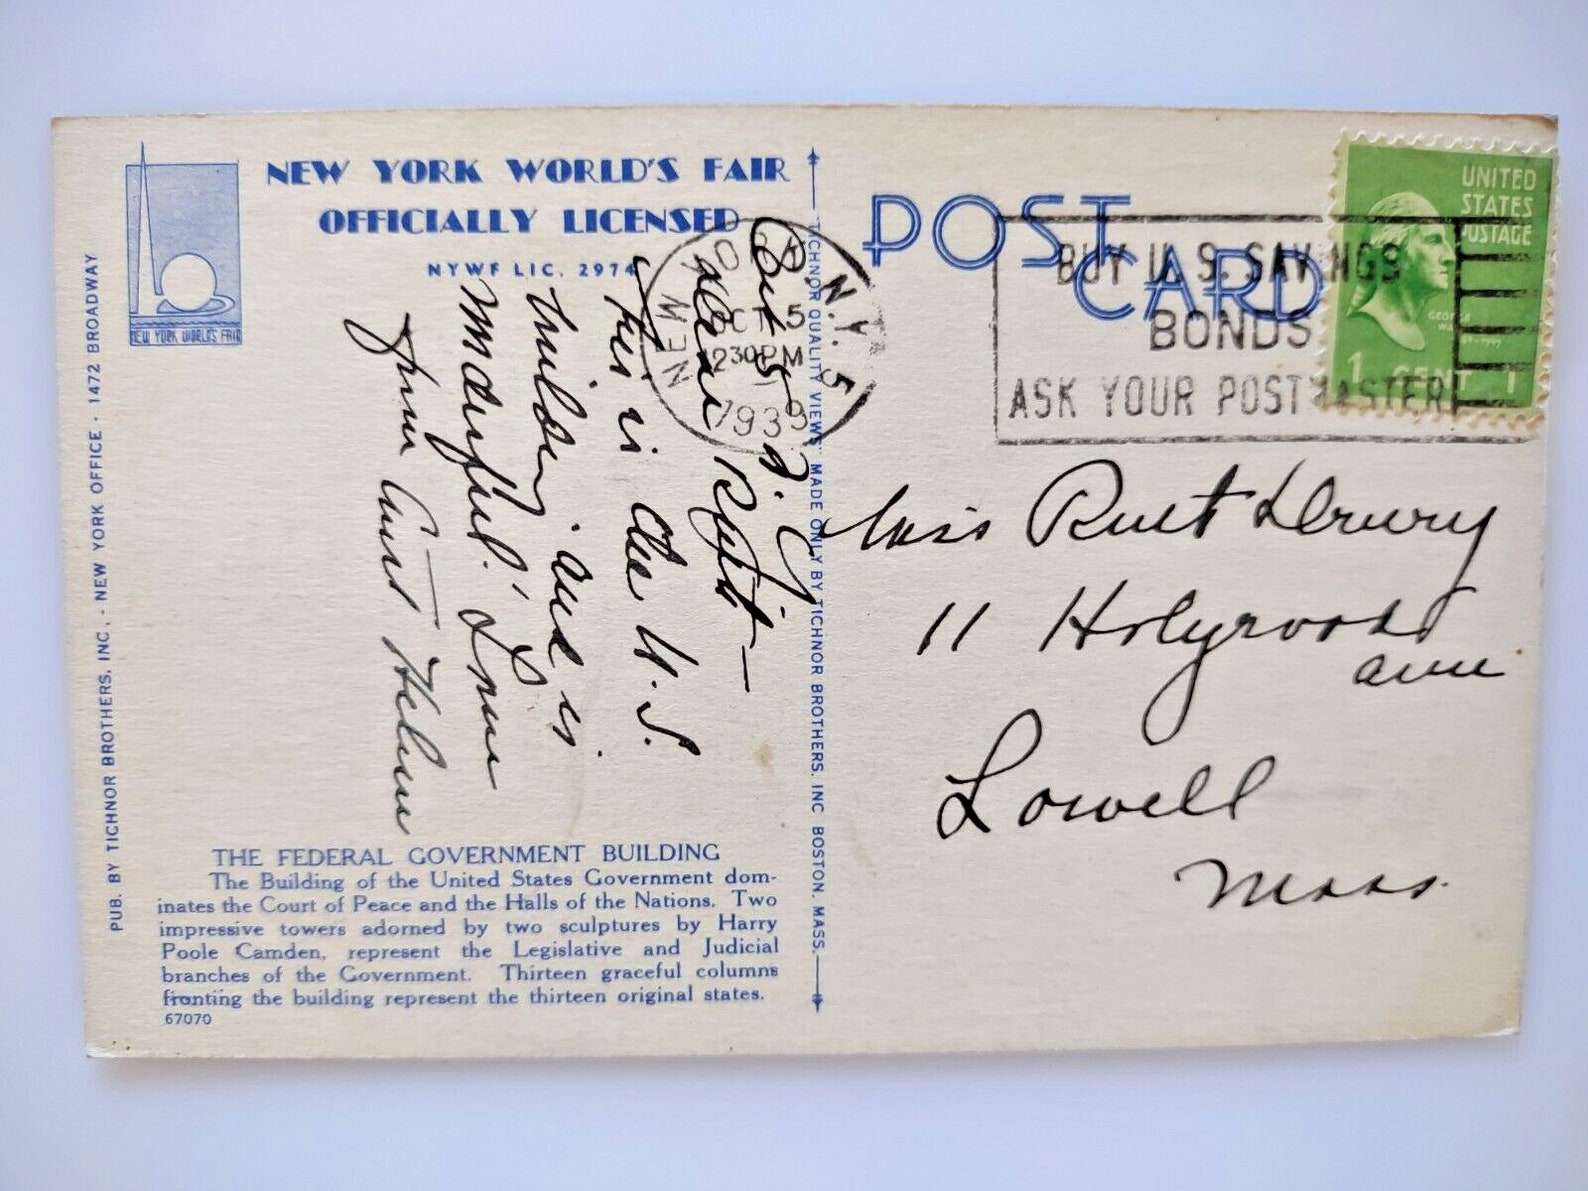 NEW YORK WORLD'S FAIR
OFFICIALLY LICENSED
NYWF LIC. 2974
NEW YORK WORLD'S FAIR
PUB. BY TICHNOR BROTHERS, INC. · NEW YORK OFFICE · 1472 BROADWAY
Oct 5
Dear Ruth —
This is the U.S.
building and is
wonderful. Love
from Aunt Helen
THE FEDERAL GOVERNMENT BUILDING
The Building of the United States Government dom-
inates the Court of Peace and the Halls of the Nations. Two
impressive towers adorned by two sculptures by Harry
Poole Camden, represent the Legislative and Judicial
branches of the Government. Thirteen graceful columns
fronting the building represent the thirteen original states.
67070
TICHNOR QUALITY VIEWS MADE ONLY BY TICHNOR BROTHERS, INC BOSTON, MASS.
POST
CARD
NEW N.Y. 5
OCT 5
1230 PM
1939
BUY U.S. SAVINGS
BONDS
ASK YOUR POSTMASTER
UNITED
STATES
POSTAGE
GEORGE
1 CENT 1
Miss Ruth Drury
11 Holyrood
ave
Lowell
Mass.